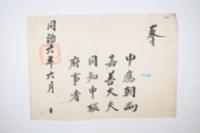 奉
申應朝爲
嘉善大夫
同知中樞
府事者
同治六年六月 日